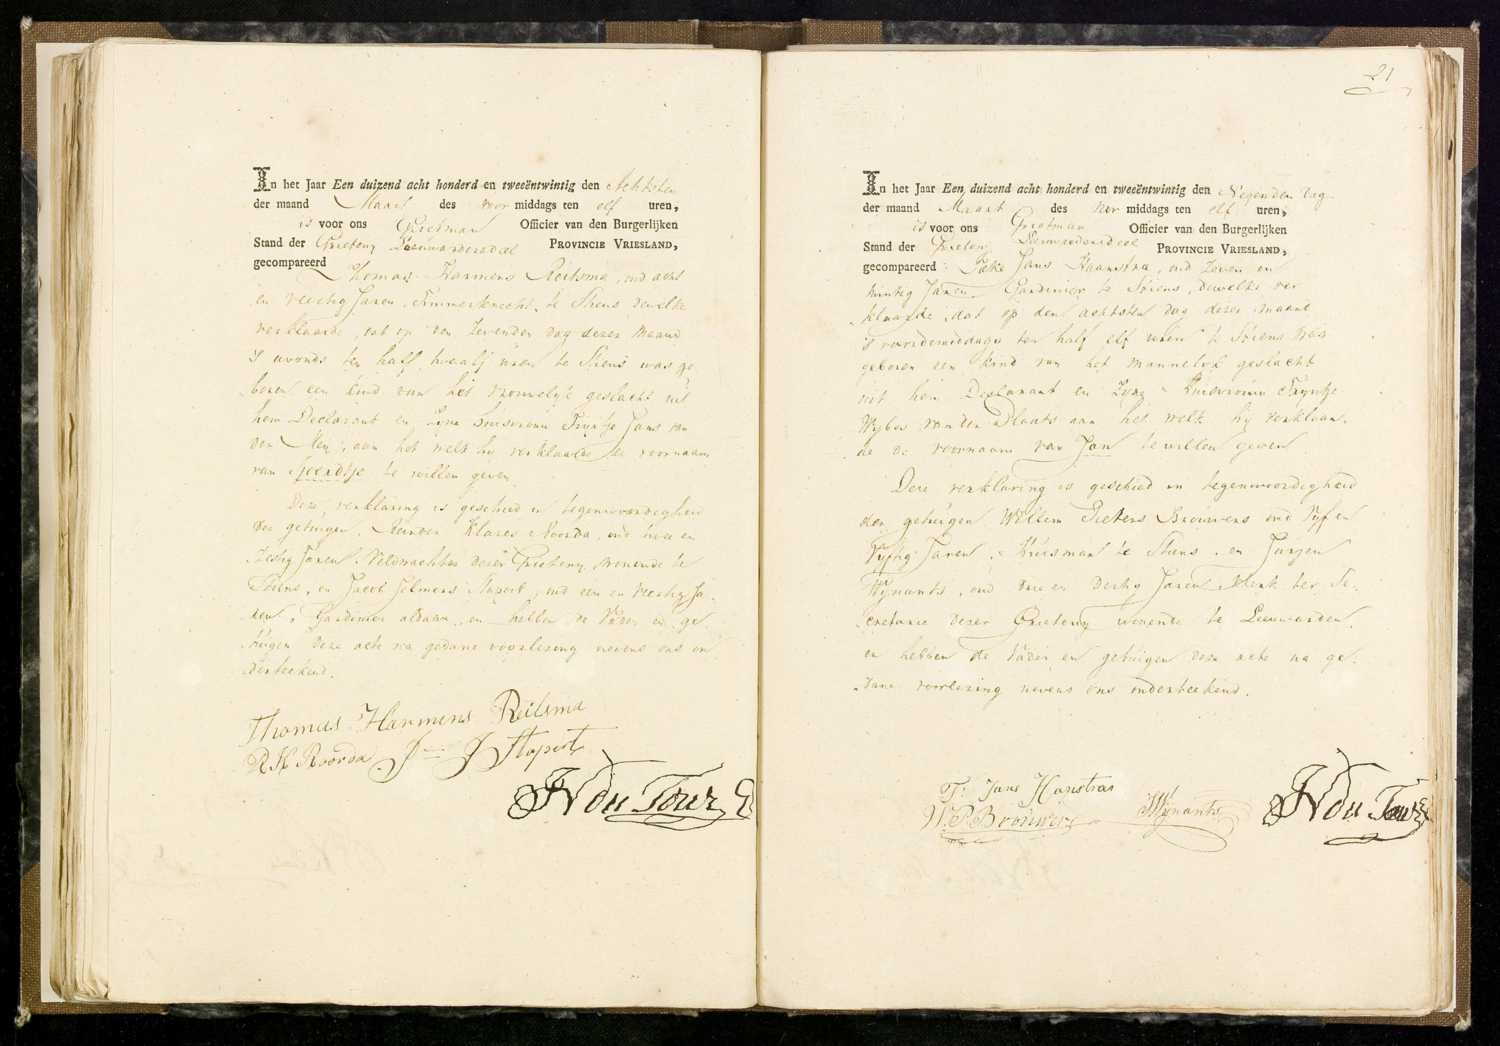 In het Jaar Een duizend acht honderd en tweeëntwintig den Achtsten
der maand Maart des voor middags ten elf uren,
is voor ons Grietman Officier van den Burgerlijken
Stand der Grieteny Leeuwarderadeel PROVINCIE VRIESLAND,
gecompareerd
Thomas Harmens Reitsma, oud acht
en veertig Jaren, Timmerknecht, te Stiens dewelke
verklaarde, dat op den Zevenden dag dezer maand
's avonds ten half twaalf uren te Stiens was ge
boren een kind van het vrouwelijk geslacht uit
hem Declarant en Zyne huisvrouw Tryntje Jans van
der Meij, aan het welk hij verklaarde de voornaam
van Sjeerdtje te willen geven
Deze verklaring is geschied in tegenwoordigheid
der getuigen Reinder Klazes Roorda, oud twee en
Zestig Jaren, Veldwachter dezer Grieteny, wonende te
Stiens, en Jacob Jelmers Stapert, oud een en veertig Ja-
ren, Gardenier aldaar, en hebben de Vader en ge
tuigen deze acte na gedane voorlezing nevens ons on
derteekend.
Thomas Harmens Reitsma
R K Roorda J J Stapert
N du Tour
21
In het Jaar Een duizend acht honderd en tweeëntwintig den Negenden dag
der maand Maart des voor middags ten elf uren,
is voor ons Grietman Officier van den Burgerlijken
Stand der Grieteny Leeuwarderadeel PROVINCIE VRIESLAND,
gecompareerd Jans Kaanstra, oud Zeven en
twintig Jaren Gardenier te Stiens, dewelke ver
klaarde, dat op den achtsten dag dezer maand
's voordemiddags ten half elf uren te Stiens was
geboren een kind van het mannelijk geslacht
uit hem Declarant en Zyne Huisvrouw Tryntje
Wybes van der Plaats aan het welk hij verklaar-
de de voornaam van Jan te willen geven
Deze verklaring is geschied in tegenwoordigheid
der getuigen Willem Pieters Brouwers oud Vyf en
Vyftig Jaren, Huisman te Stiens, en Jurjen
Wynants, oud drie en dertig Jaren Klerk ter Se-
cretarie dezer Grieteny wonende te Leeuwarden,
en hebben de Vader en getuigen deze acte na ge-
dane voorlezing nevens ons onderteekend.
Jans Kanstras
W. P. Brouwers Wynants N du Tour